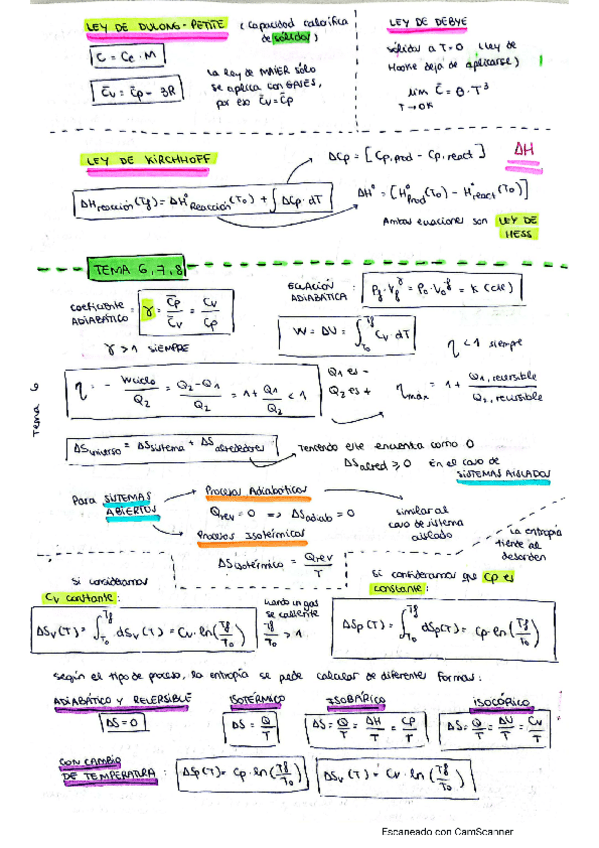 LEY DE DULONG-PETITE (Capacidad calorífica de sólidos)
C = Ce · M
C̄v = C̄p - 3R
La ley de MAIER sólo
se aplica con GASES,
por eso C̄v = C̄p
LEY DE DEBYE
sólidos a T=0 (Ley de
Hooke deja de aplicarse)
lim C̄ = θ · T³
T→0K
LEY DE KIRCHHOFF
ΔCp = [Cp,prod - Cp,react]
ΔH
ΔHreacción(Tf) = ΔH°Reacción(To) + ∫ΔCp · dT
ΔH° = [H°Prod(To) - H°react(To)]
Ambas ecuaciones son LEY DE HESS
TEMA 6,7,8
Tema 6
coeficiente ADIABÁTICO = γ = C̄p/C̄v = Cv/Cp
γ > 1 SIEMPRE
ECUACIÓN ADIABÁTICA : Pf·Vf^γ = Po·Vo^γ = K (cte)
W = ΔU = ∫To Tf Cv dT
η < 1 siempre
η = - Wciclo/Q2 = (Q2-Q1)/Q2 = 1 + Q1/Q2 < 1
Q1 es -
Q2 es +
ηmáx = 1 + Q1,reversible/Q2,reversible
ΔSuniverso = ΔSsistema + ΔSalrededores
Teniendo este encuenta como 0
ΔSalred ≥ 0 En el caso de SISTEMAS AISLADOS
Para SISTEMAS ABIERTOS
Procesos Adiabáticos
Qrev = 0 => ΔSadiab = 0
similar al
caso de sistema
aislado
Procesos Isotérmicos
ΔSisotérmico = Qrev/T
La entropía
tiende al
desorden
si consideramos
Cv constante:
ΔSv(T) = ∫To Tf dSv(T) = Cv · ln(Tf/To)
cuando un gas
se caliente
Tf/To > 1
si consideramos que Cp es
constante:
ΔSp(T) = ∫To Tf dSp(T) = Cp · ln(Tf/To)
según el tipo de proceso, la entropía se pede calcular de diferentes formas:
ADIABÁTICO Y REVERSIBLE
ΔS = 0
ISOTÉRMICO
ΔS = Q/T
ISOBÁRICO
ΔS = Q/T = ΔH/T = Cp/T
ISOCÓRICO
ΔS = Q/T = ΔU/T = Cv/T
CON CAMBIO
DE TEMPERATURA : ΔSp(T) = Cp · ln(Tf/To) ΔSv(T) = Cv · ln(Tf/To)
Escaneado con CamScanner